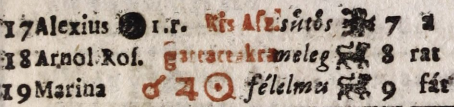 17 Alexius 1.r. sűtős 7 a
18 Arnol. Ros. meleg 8 rat
19 Marina ♂ ♃ ☉ félelmes 9 fát